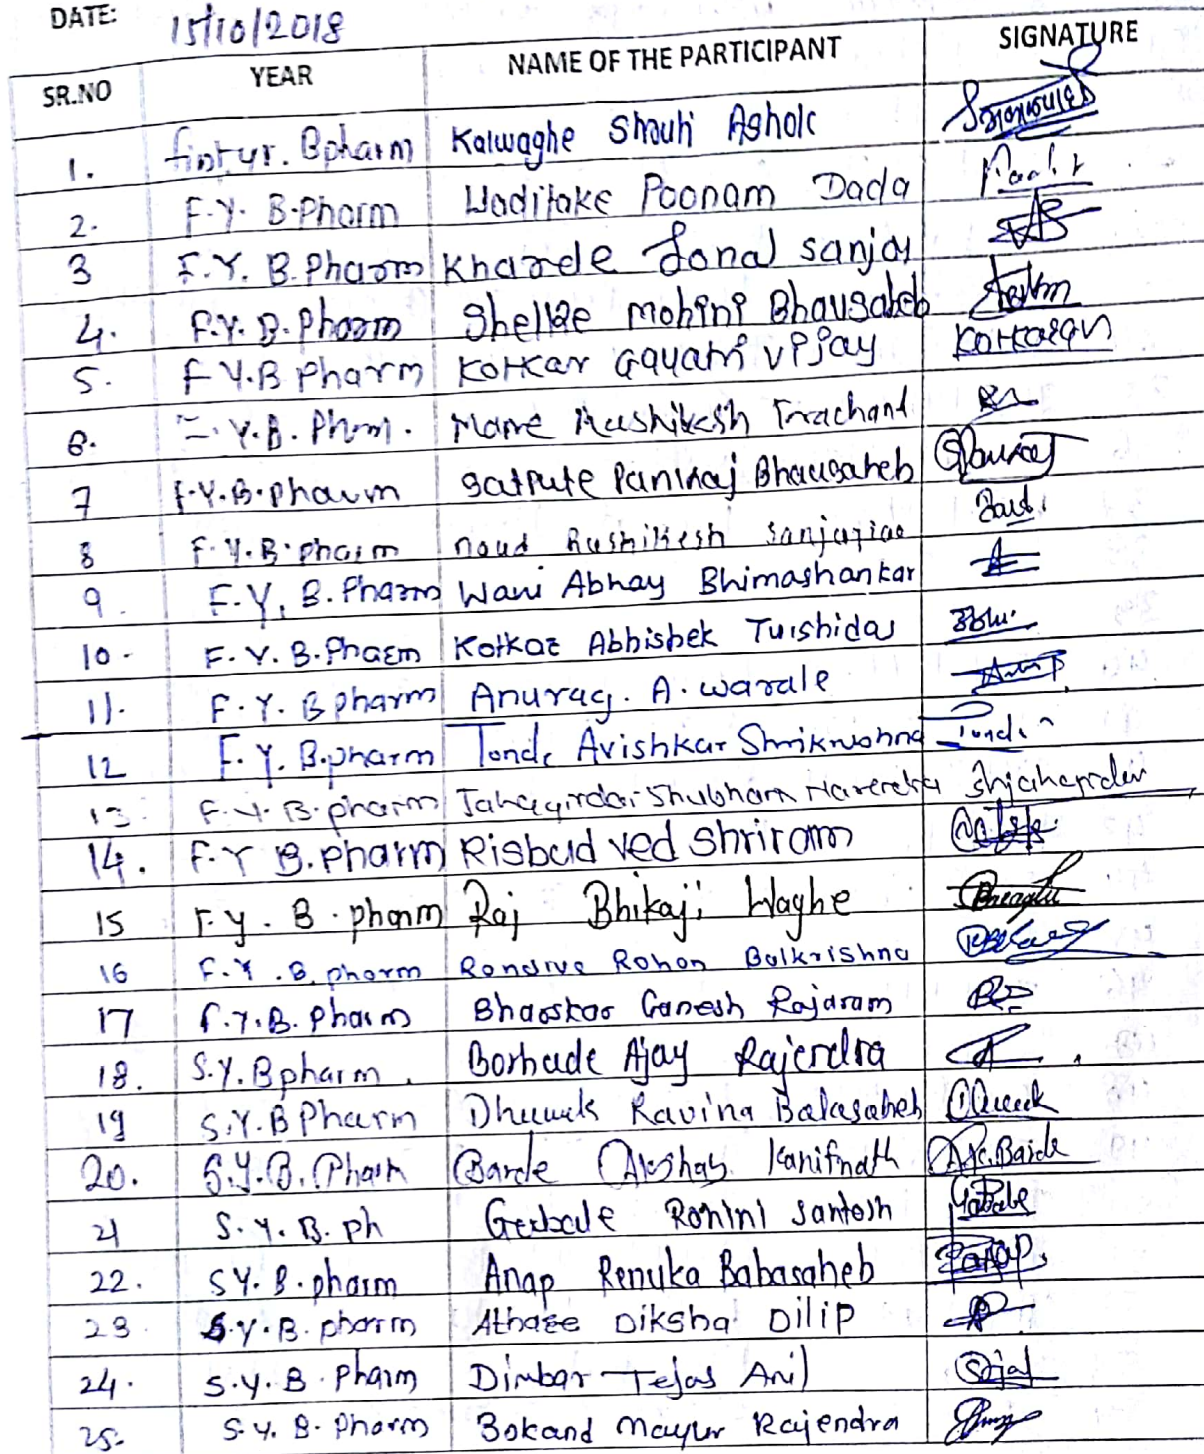 DATE: 15/10/2018
SR.NO YEAR NAME OF THE PARTICIPANT SIGNATURE
1. first yr. Bpharm Kalwaghe Shruti Ashok
2. F.Y. B.Pharm Waditake Poonam Dada
3 F.Y. B.Pharm Kharde Sonal sanjay
4. F.Y. B.Pharm Shelke Mohini Bhausaheb
5. F Y.B Pharm Kotkar Gayatri Vijay Kotkargv
6. F.Y.B. Phrm. Mane Rushikesh Trachand
7 F.Y.B.pharm Satpute Pankaj Bhausaheb
8 F.Y.B.pharm Rushikesh Sanjayrao
9. F.Y. B.Pharm Wani Abhay Bhimashankar
10. F.Y.B.Pharm Kotkar Abhishek Tulshidas
11. F.Y. B pharm Anurag. A. Warale
12 F.Y. B.pharm Tonde Avishkar Shrikrushna
13. F.Y.B.pharm Jahagirdar Shubham Narendra
14. F.Y B.pharm Risbud ved shriram
15 F.y. B.pharm Raj Bhikaji Waghe
16 F.Y.B.pharm Rohan Balkrishna
17 F.Y.B. Pharm Bhaskar Ganesh Rajaram
18. S.Y.Bpharm. Borhade Ajay Rajendra
19 S.Y.B Pharm Ravina Balasaheb
20. S.Y.B.Pharm Barde Akshay Kanifnath Ak.Barde
21 S.Y.B.ph Rohini Santosh
22. SY.B.pharm Anap Renuka Babasaheb
23. S.Y.B.pharm Athare Diksha Dilip
24. S.Y.B.Pharm Dimbar Tejas Anil
25. S.Y.B.Pharm Bokand Mayur Rajendra